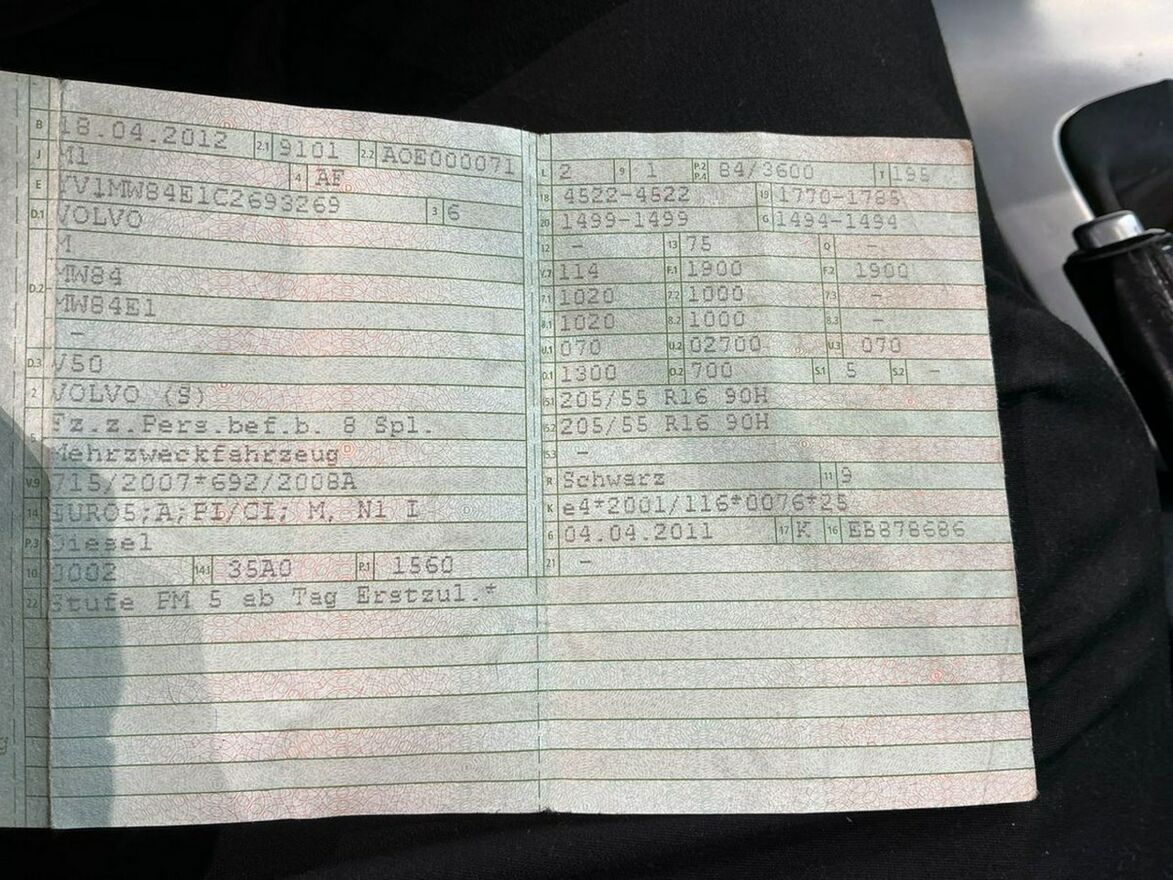 B 18.04.2012 2.1 9101 2.2 AOE000071
J M1 4 AF
E YV1MW84E1C2693269 3 6
D.1 VOLVO
M
D.2 MW84
MW84E1
-
D.3 V50
2 VOLVO (S)
5 Fz.z.Pers.bef.b. 8 Spl.
Mehrzweckfahrzeug
V.9 715/2007*692/2008A
14 EURO5;A;PI/CI; M, N1 I
P.3 Diesel
10 0002 14.1 35A0 P.1 1560
22 Stufe PM 5 ab Tag Erstzul.*
L 2 9 1 P.2 P.4 84/3600 T 195
18 4522-4522 19 1770-1785
20 1499-1499 G 1494-1494
12 - 13 75 Q -
V.7 114 F.1 1900 F.2 1900
7.1 1020 7.2 1000 7.3 -
8.1 1020 8.2 1000 8.3 -
U.1 070 U.2 02700 U.3 070
O.1 1300 O.2 700 S.1 5 S.2 -
15.1 205/55 R16 90H
15.2 205/55 R16 90H
15.3 -
R Schwarz 11 9
K e4*2001/116*0076*25
6 04.04.2011 17 K 16 EB878686
21 -